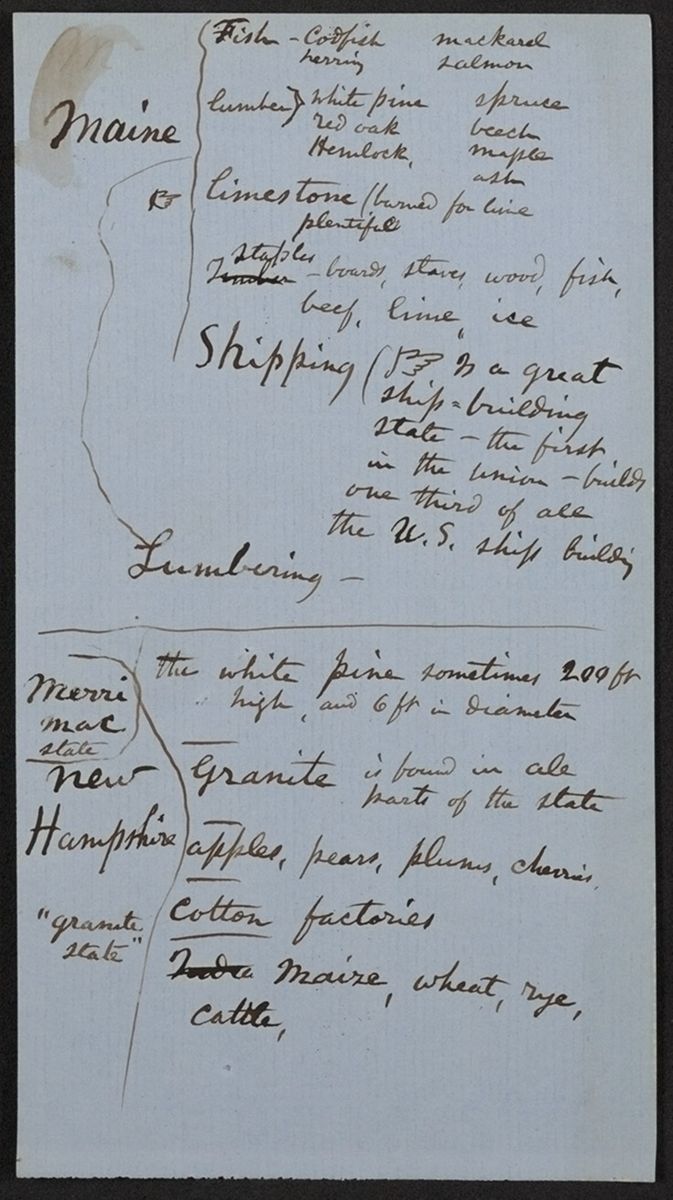 Maine
Fish – Codfish mackarel
herring salmon
lumber } white pine spruce
red oak beech
Hemlock, maple
ash
limestone (burned for lime
plentiful
staples
Timber – boards, staves, wood, fish,
beef, lime, ice
Shipping ( ☞ Is a great
ship-building
state – the first
in the union – builds
one third of all
the U.S. ship building
Lumbering –
Merri
mac
state
New
Hampshire
"granite
state"
the white pine sometimes 200 ft
high, and 6 ft in diameter
Granite is found in all
parts of the state
apples, pears, plums, cherries,
Cotton factories
India Maize, wheat, rye,
cattle,